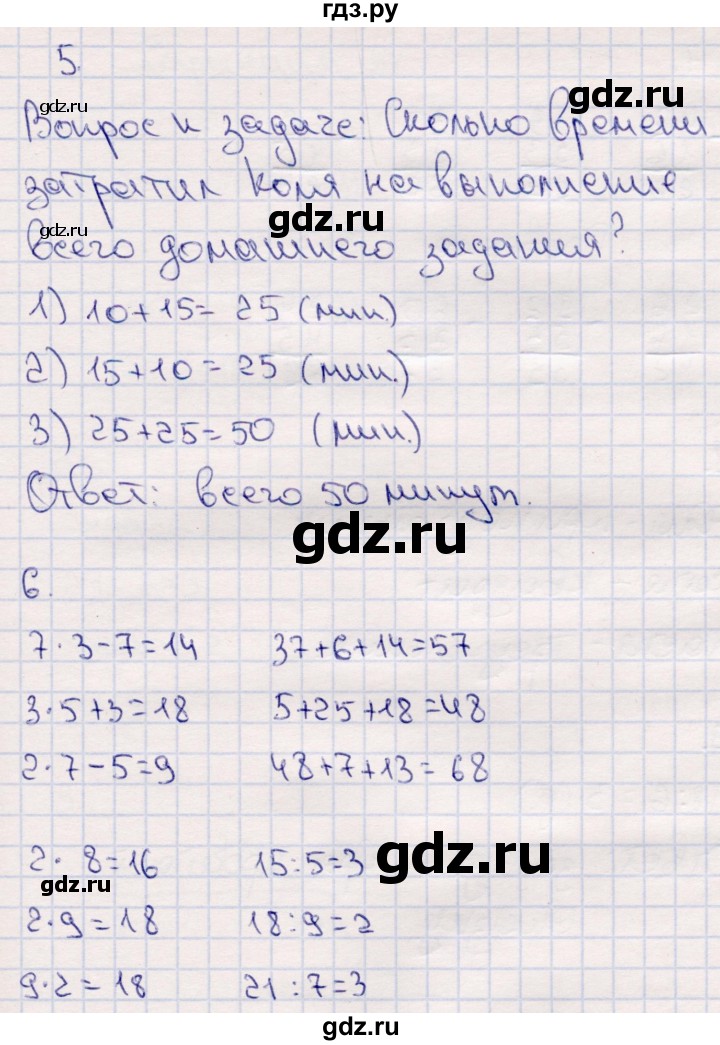 гдз.ру
5.
gdz.ru
Вопрос к задаче: Сколько времени
gdz.ru
затратил Коля на выполнение
gdz.ru
всего домашнего задания?
1) 10+15= 25 (мин.)
gdz.ru
2) 15+10=25 (мин.)
3) 25+25=50 (мин.)
gdz.ru
Ответ: всего 50 минут.
gdz.ru
6.
7·3-7=14 37+6+14=57
3·5+3=18 5+25+18=48
2·7-5=9 48+7+13=68
2·8=16 15:5=3 gdz.ru
gdz.ru
2·9=18 18:9=2
9·2=18 21:7=3
gdz.ru